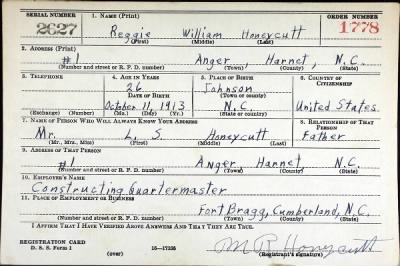 SERIAL NUMBER 1. NAME (Print) ORDER NUMBER
2627 Reggie William Honeycutt 1778
(First) (Middle) (Last)
2. ADDRESS (Print)
#1 Anger, Harnet, N.C.
(Number and street or R. F. D. number) (Town) (County) (State)
3. TELEPHONE 4. AGE IN YEARS 5. PLACE OF BIRTH 6. COUNTRY OF CITIZENSHIP
26 Johnson
DATE OF BIRTH (Town or county)
October 11, 1913 N.C. United States.
(Exchange) (Number) (Mo.) (Day) (Yr.) (State or country)
7. NAME OF PERSON WHO WILL ALWAYS KNOW YOUR ADDRESS 8. RELATIONSHIP OF THAT PERSON
Mr. L. S. Honeycutt Father
(Mr., Mrs., Miss) (First) (Middle) (Last)
9. ADDRESS OF THAT PERSON
#1 Anger, Harnet N.C.
(Number and street or R. F. D. number) (Town) (County) (State)
10. EMPLOYER'S NAME
Constructing Quartermaster
11. PLACE OF EMPLOYMENT OR BUSINESS
Fort Bragg, Cumberland, N.C.
(Number and street or R. F. D. number) (Town) (County) (State)
I AFFIRM THAT I HAVE VERIFIED ABOVE ANSWERS AND THAT THEY ARE TRUE.
REGISTRATION CARD
D. S. S. Form 1 (over) 16—17235 (Registrant's signature)